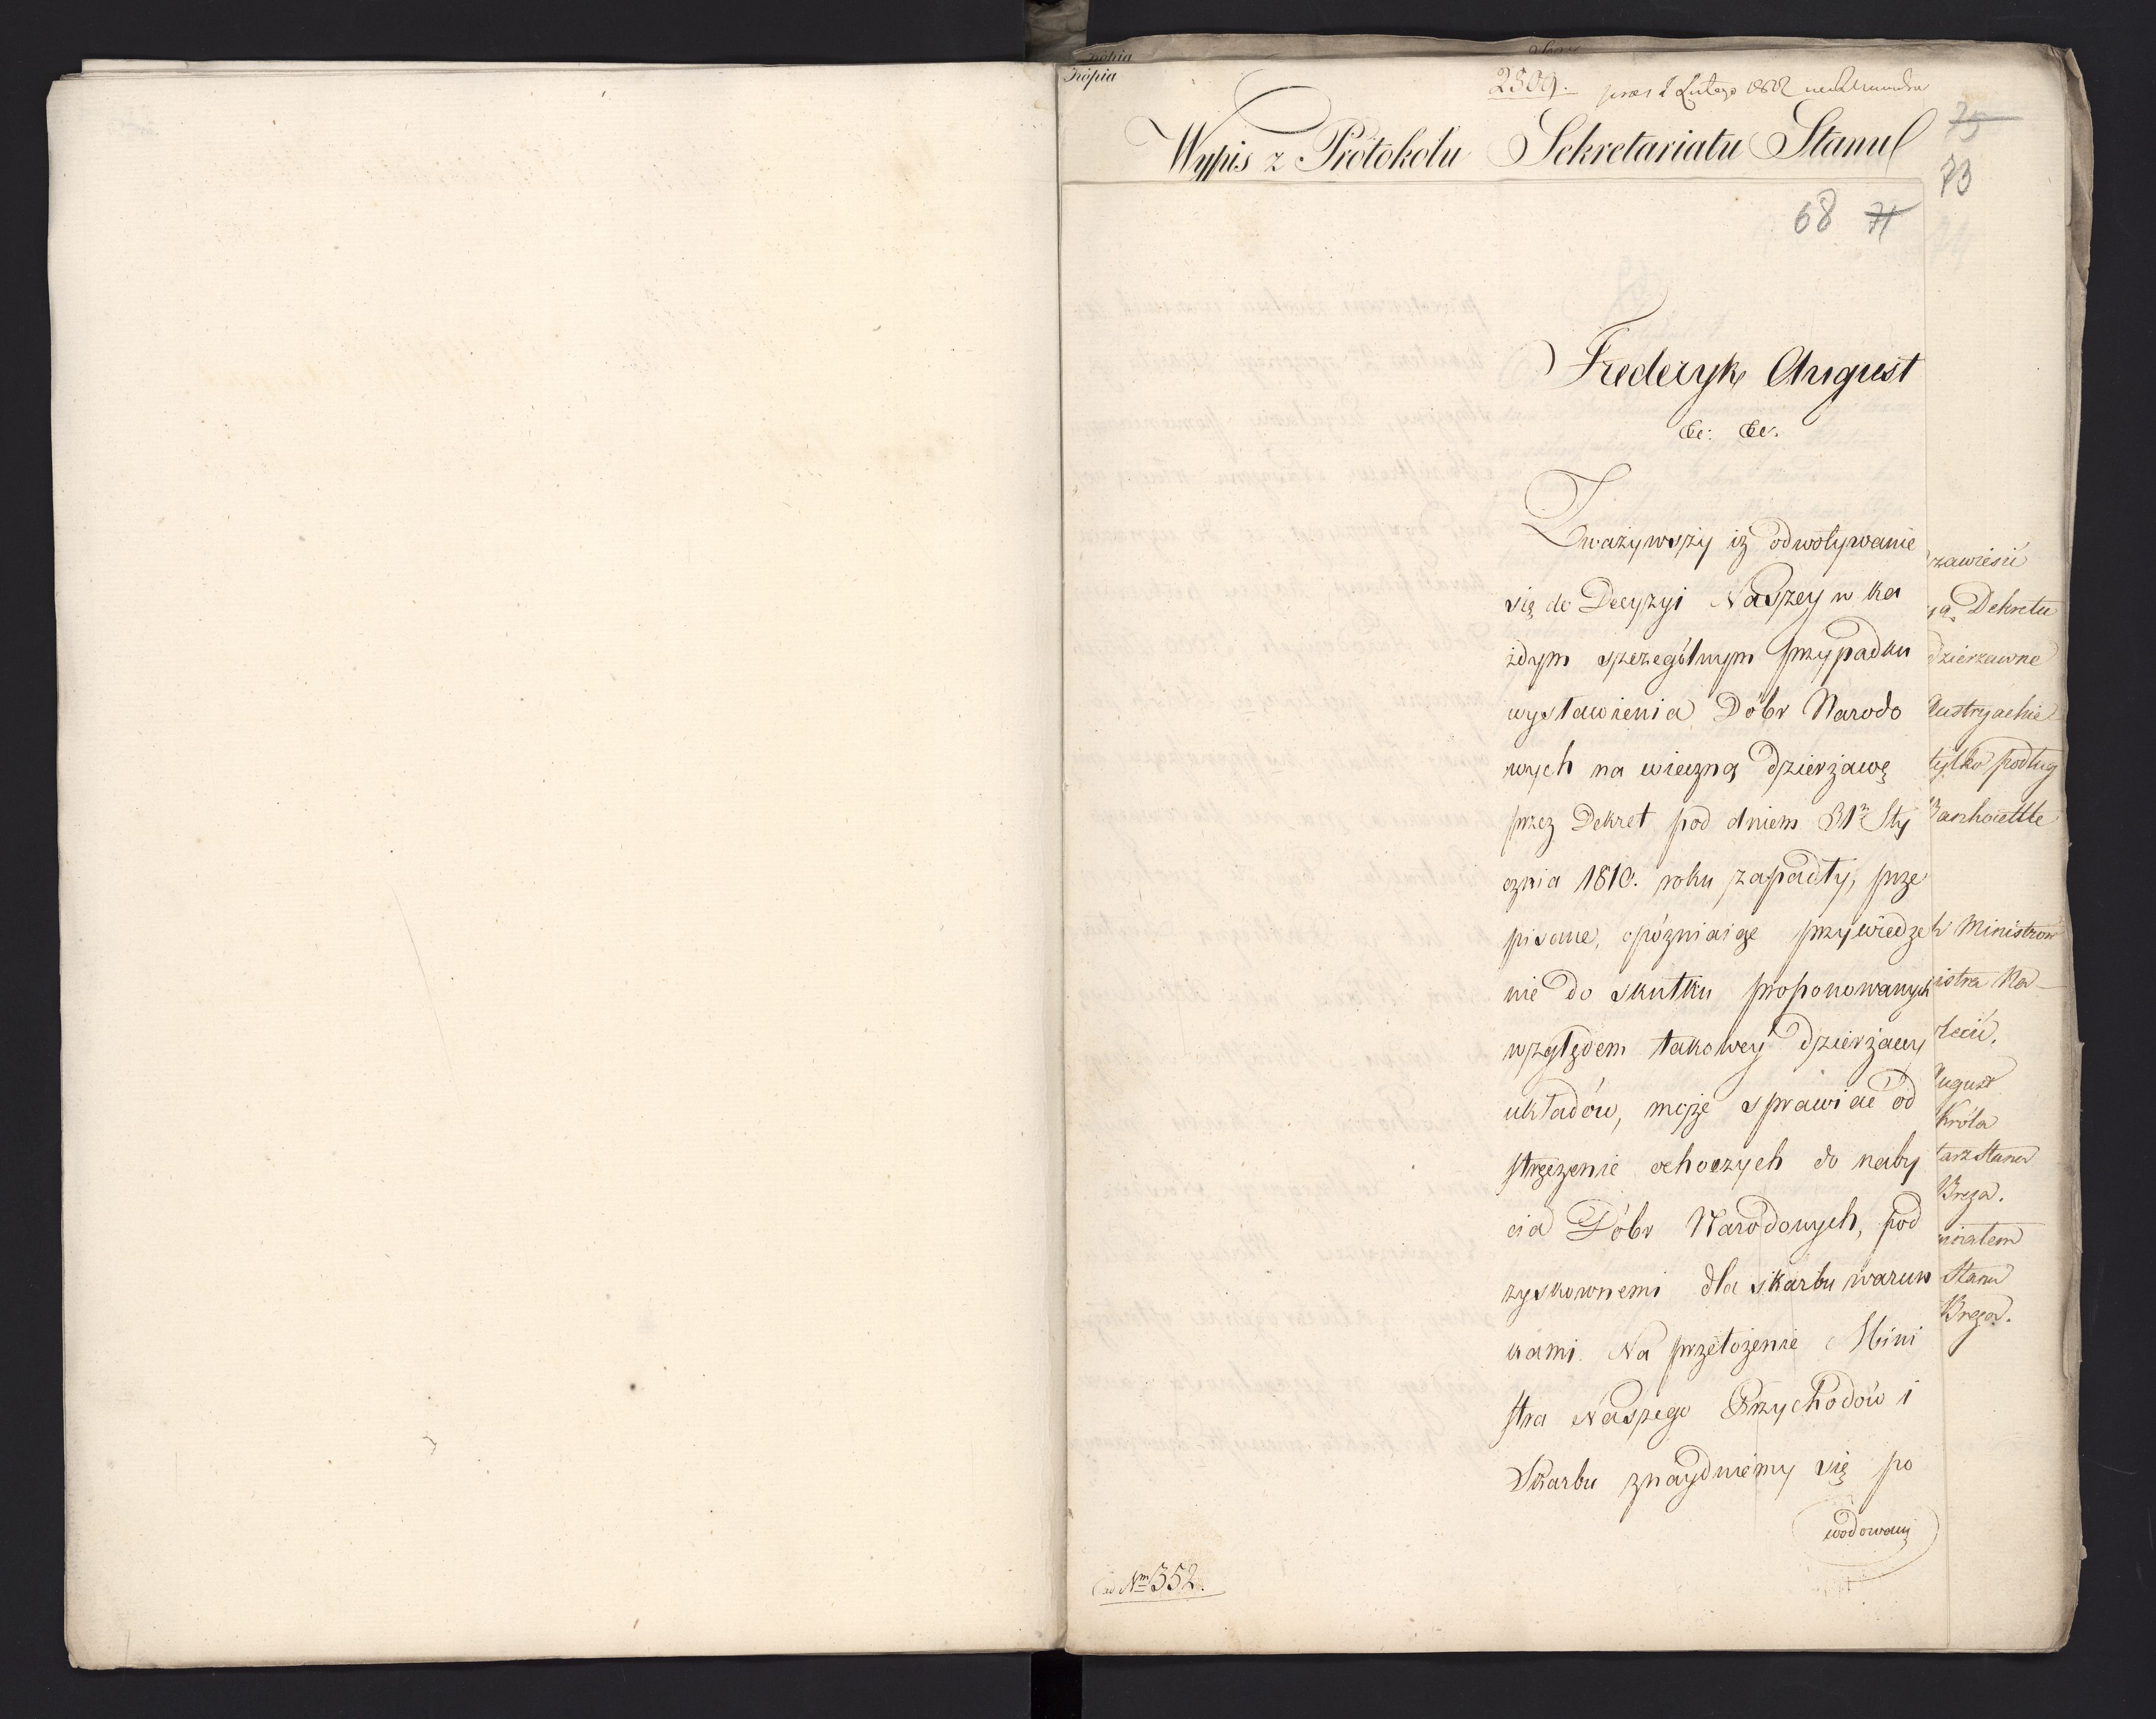 Kopia
Kopia
2509. pres 2 Lutego
Wypis z Protokołu Sekretariatu Stanu
75
73
68 71
Frederyk August
&c: &c.
Zważywszy iż odwoływanie
się do Decyzyi Naszey w ka
żdym szczególnym przypadku
wystawienia Dóbr Narodo
wych na wieczną dzierżawę
przez Dekret pod dniem 31 Sty
cznia 1810. roku zapadły, prze
pisane, opózniaiąc przywiedze
nie do skutku proponowanych
względem takowey dzierżawy
układów, może sprawiać od
stręczenie ochoczych do naby
cia Dóbr Narodowych, pod
zyskownemi dla skarbu warun
kami. Na przełożenie Mini
stra Naszego Przychodów i
Skarbu znayduiemy się po
wodowani
ad Nm 352.
zawiesić
Dekretu
dzierzawne
Austryackie
tylko podług
Ministrow
istra Na
lecić.
August
Króla
tarz Stanu
Breza.
Stanu
Breza.